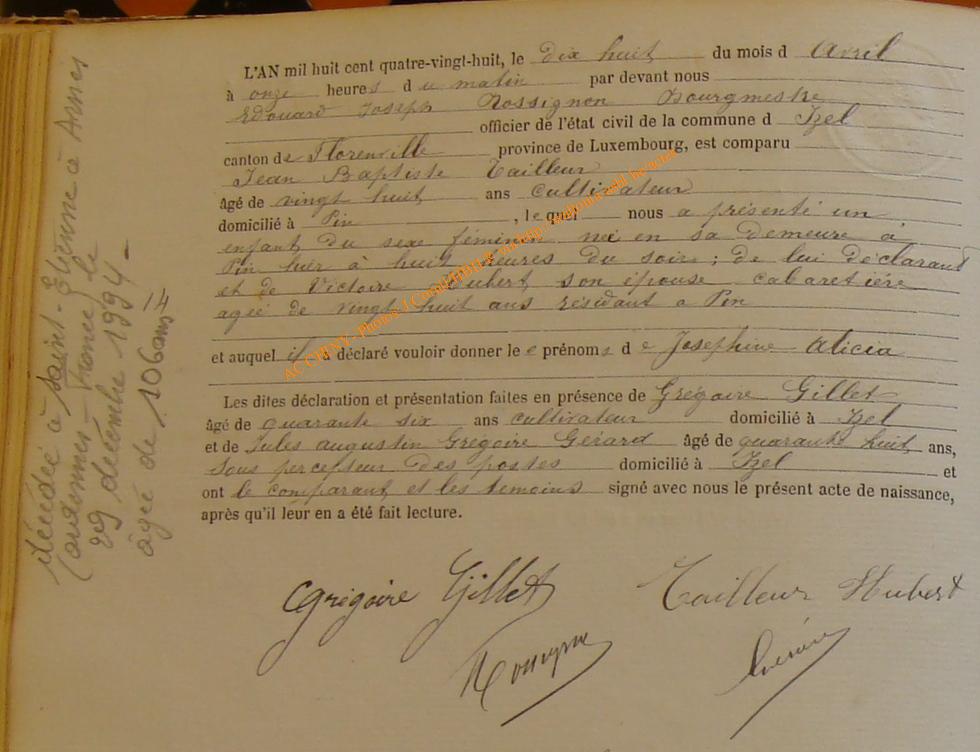 L'AN mil huit cent quatre-vingt-huit, le dix huit du mois d Avril
à onze heures du matin par devant nous
Edouard Joseph Rossignon Bourgmestre
officier de l'état civil de la commune d Izel
canton de Florenville province de Luxembourg, est comparu
Jean Baptiste Tailleur
âgé de vingt huit ans cultivateur
domicilié à Pin , lequel nous a présenté un
enfant du sexe féminin né en sa demeure à
Pin hier à huit heures du soir ; de lui déclarant
et de Victoire Hubert son épouse cabaretière
agée de vingt huit ans résidant a Pin
et auquel il a déclaré vouloir donner le e prénoms de Josephine Alicia
Les dites déclaration et présentation faites en présence de Grégoire Gillet
âgé de quarante six ans cultivateur domicilié à Izel
et de Jules augustin Grégoire Gérard âgé de quarante huit ans,
sous percepteur des postes domicilié à Izel et
ont le comparant et les temoins signé avec nous le présent acte de naissance,
après qu'il leur en a été fait lecture.
Grégoire Gillet Tailleur Hubert
décédée à Saint-Etienne à Arnes
(ardennes - France) le
29 décembre 1994 -
âgée de 106 ans
14